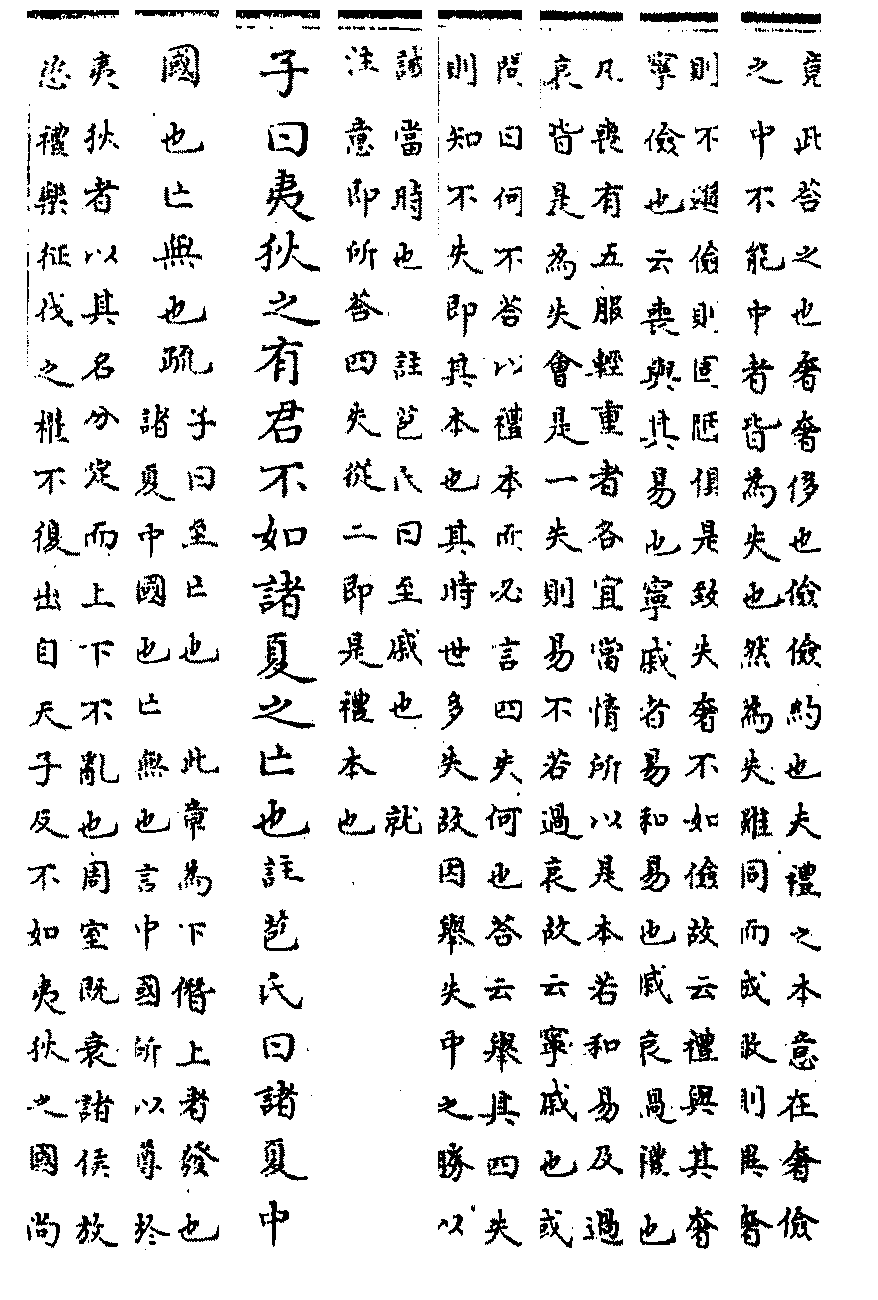 竟此荅之也奢奢侈也儉儉約也夫禮之本意在奢儉
之中不能中者皆為失也然為失雖同而成敗則異奢
則不遜儉則固陋俱是致失奢不如儉故云禮與其奢
寧儉也云喪與其易也寧戚者易和易也戚哀過禮也
凡喪有五服輕重者各宜當情所以是本若和易及過
哀皆是為失會是一失則易不若過哀故云寧戚也或
問曰何不荅以禮本而必言四失何也荅云舉其四失
則知不失即其本也其時世多失故因舉失中之勝以
誡當時也　註苞氏曰至戚也　就
注意即所荅四失從二即是禮本也
子曰夷狄之有君不如諸夏之亡也註苞氏曰諸夏中
國也亡無也疏
子曰至亡也　此章為下僭上者發也
諸夏中國也亡無也言中國所以尊於
夷狄者以其名分定而上下不亂也周室既衰諸侯放
恣禮樂征伐之權不復出自天子反不如夷狄之國尚